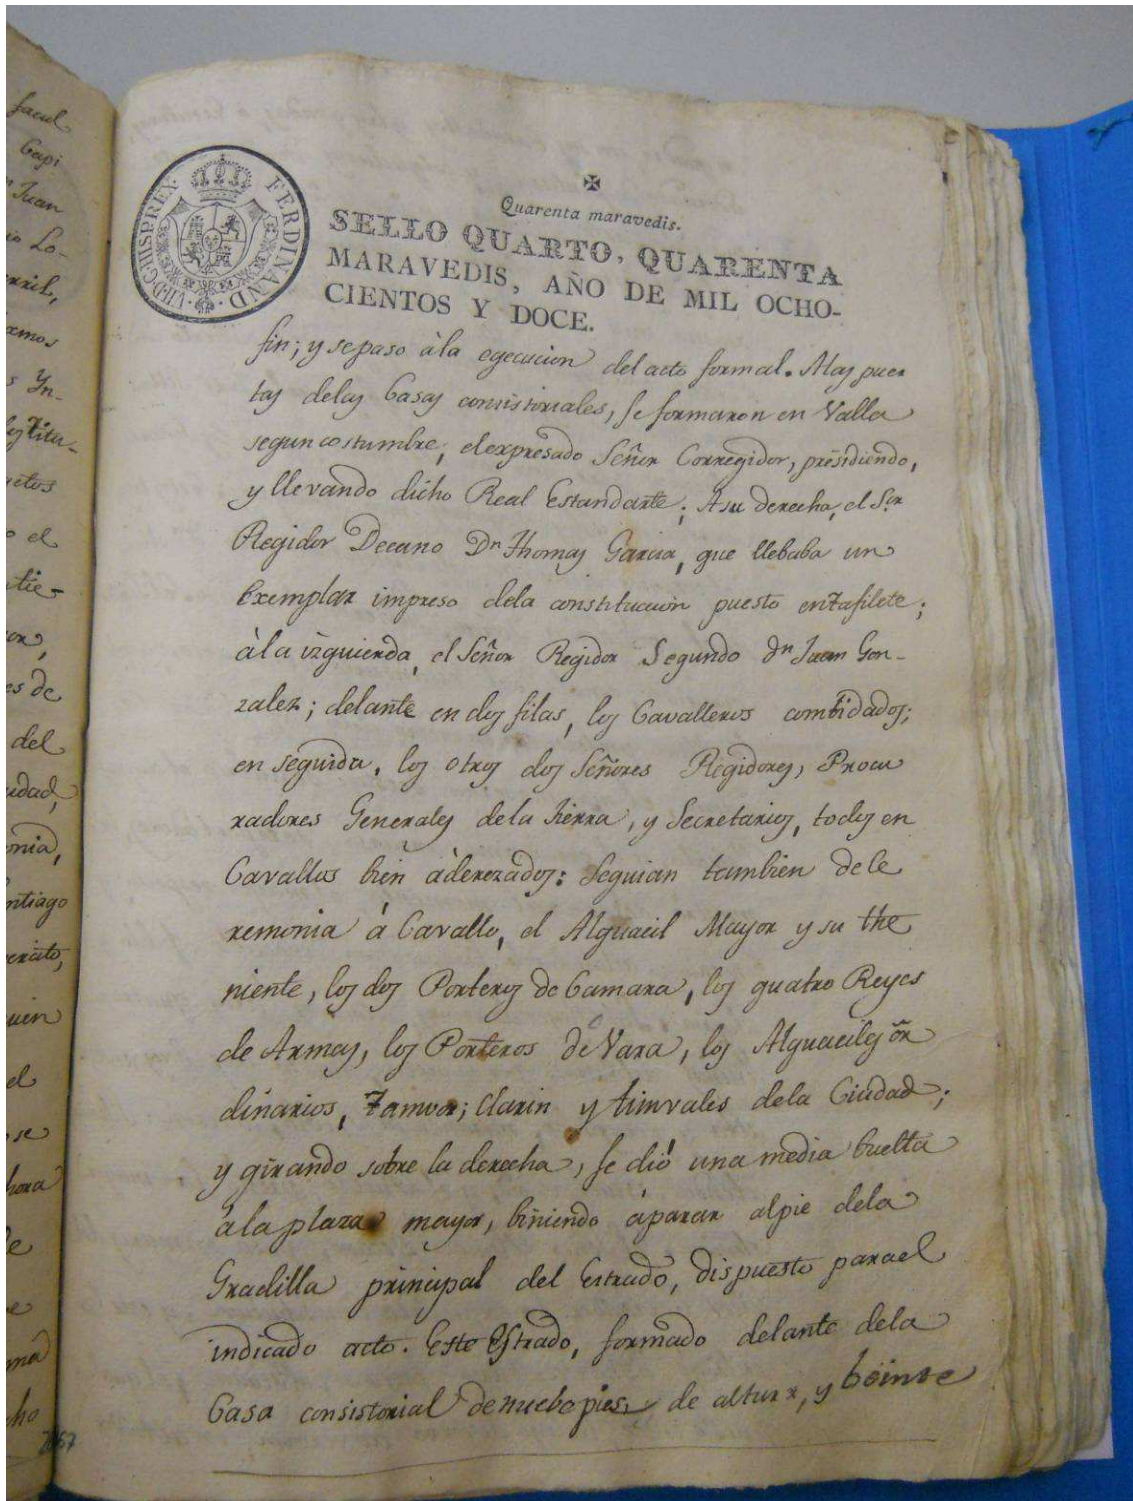 ✠
Quarenta maravedis.
SELLO QUARTO, QUARENTA
MARAVEDIS, AÑO DE MIL OCHO-
CIENTOS Y DOCE.
FERDINAND·VII·D·G·HISP·REX·
fin; y sepaso àla egecucion del acto formal. Alas puer
tas delas Casas consistoriales, se formaron en Valla
segun costumbre, el expresado Señor Corregidor, presidiendo,
y llevando dicho Real Estandarte; Asu derecha, el Sor
Regidor Decano Dn Thomas Garcia, que llebaba un
Exemplar impreso dela constitucion puesto en tafilete;
àla izquierda, el Señor Regidor Segundo dn Juan Gon-
zalez; delante en dos filas, los Cavalleros combidados;
en seguida, los otros dos Señores Regidores, Procu
radores Generales dela tierra, y Secretarios, todos en
Cavallos bien àderezados: Seguian tambien de Ce
remonia à Cavallo, el Alguacil Mayor y su the
niente, los dos Porteros de Camara, los quatro Reyes
de Armas, los Porteros de Vara, los Alguaciles or
dinarios, Tambor; Clarin y timvales dela Ciudad;
y girando sobre la derecha, se dió una media buelta
àla plaza mayor, biniendo àparar alpie dela
Gradilla principal del Estrado, dispuesto parael
indicado acto. Este Estrado, formado delante dela
Casa consistorial de nuebe pies, de altura, y beinte
facul
Capi
Juan
Lo-
Yn-
Titu-
el
es de
del
idad,
onia,
ntiago
ercito,
el
se
hora
ho